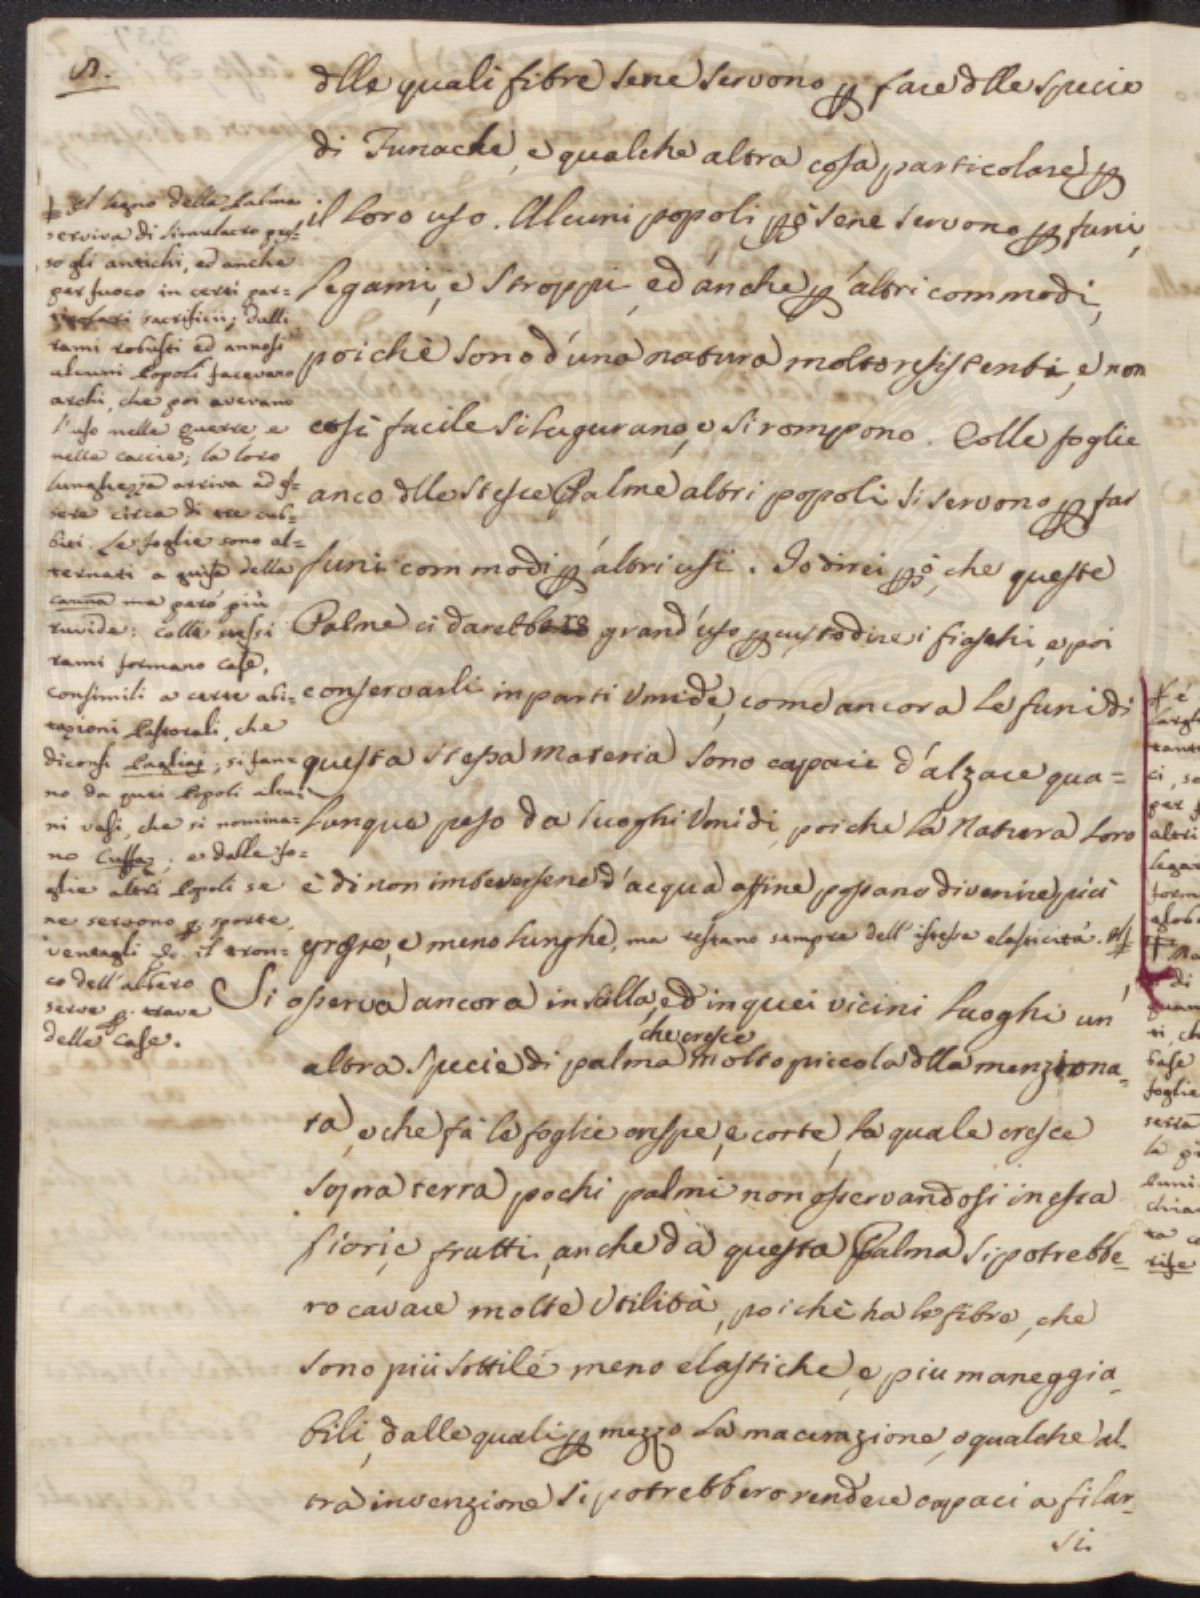 S.
dlle quali fibre sene servono p fare dlle specie
di Funache, e qualche altra cosa particolare p
il loro uso. Alcuni popoli pò sene servono p funi,
legami, e stroppi, ed anche p altri commodi,
poichè sono d'una natura molto resistenti, e non
così facile si logurano, e si rompono. Colle foglie
anco dlle stesce Palme altri popoli si servono p far
funi commodi p altri usi. Io direi pò, che queste
Palme ci darebbero grand'uso p custodire i fiaschi, e poi
conservarli in parti Umide, come ancora le funi di
questa stessa materia sono capaci d'alzare qua=
lunque peso da luoghi Umidi, poiche la Natura loro
è di non imbeversene d'acqua affine possano divenire più
grosse, e meno lunghe, ma restano sempre dell'istessa elasticità.
Si osserva ancora in Scilla, ed in quei vicini luoghi un
altra specie di palma che cresce molto piccola dlla menziona=
ta, e che fà le foglie crespe, e corte, la quale cresce
sopra terra pochi palmi non osservandosi in essa
fiori, e frutti, anche da questa Palma si potrebbe=
ro cavare molte Utilità, poichè ha le fibre, che
sono più sottile meno elastiche, e piu maneggia=
bili, dalle quali p mezzo la macerazione, o qualche al=
tra invenzione si potrebbero rendere capaci a filar=
si
Il legno della Palma
serviva di simulacro pres=
so gli antichi, ed anche
per fuoco in certi par=
ticolari sacrificii; dalli
rami robusti ed annosi
alcuni Popoli facevano
archi, che poi avevano
l'uso nelle guerre, e
nelle caccie; la loro
lunghezza arriva ad es=
sere circa di tre cub=
biti. Le foglie sono al=
ternati a guisa della
canna ma però più
ruvide: colle stessi
rami formano case,
consimili a certe abi=
tazioni Pastorali, che
diconsi Pagliaj; si fan=
no da quei Popoli alcu=
ni vasi, che si nomina=
no Cuffaz; e dalle fo=
glie altri Popoli se
ne servono p sporte,
ventagli &c. il tron=
co dell'albero
serve p trave
delle case.